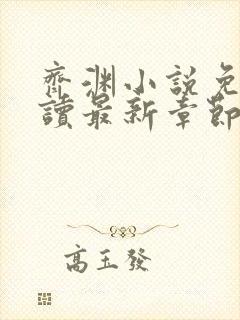 齊淵小說免
讀最新章節
高玉發